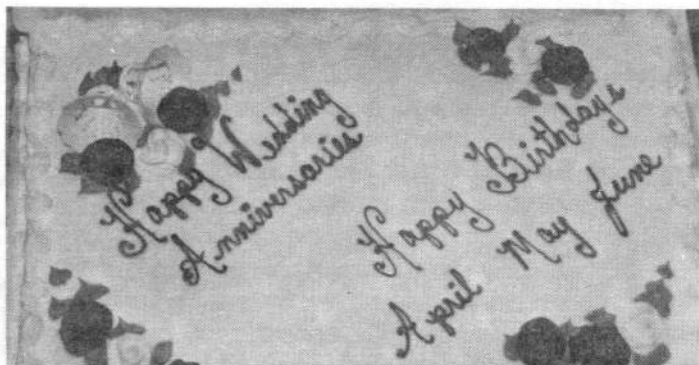 Happy Wedding
Anniversaries
Happy Birthdays
April May June